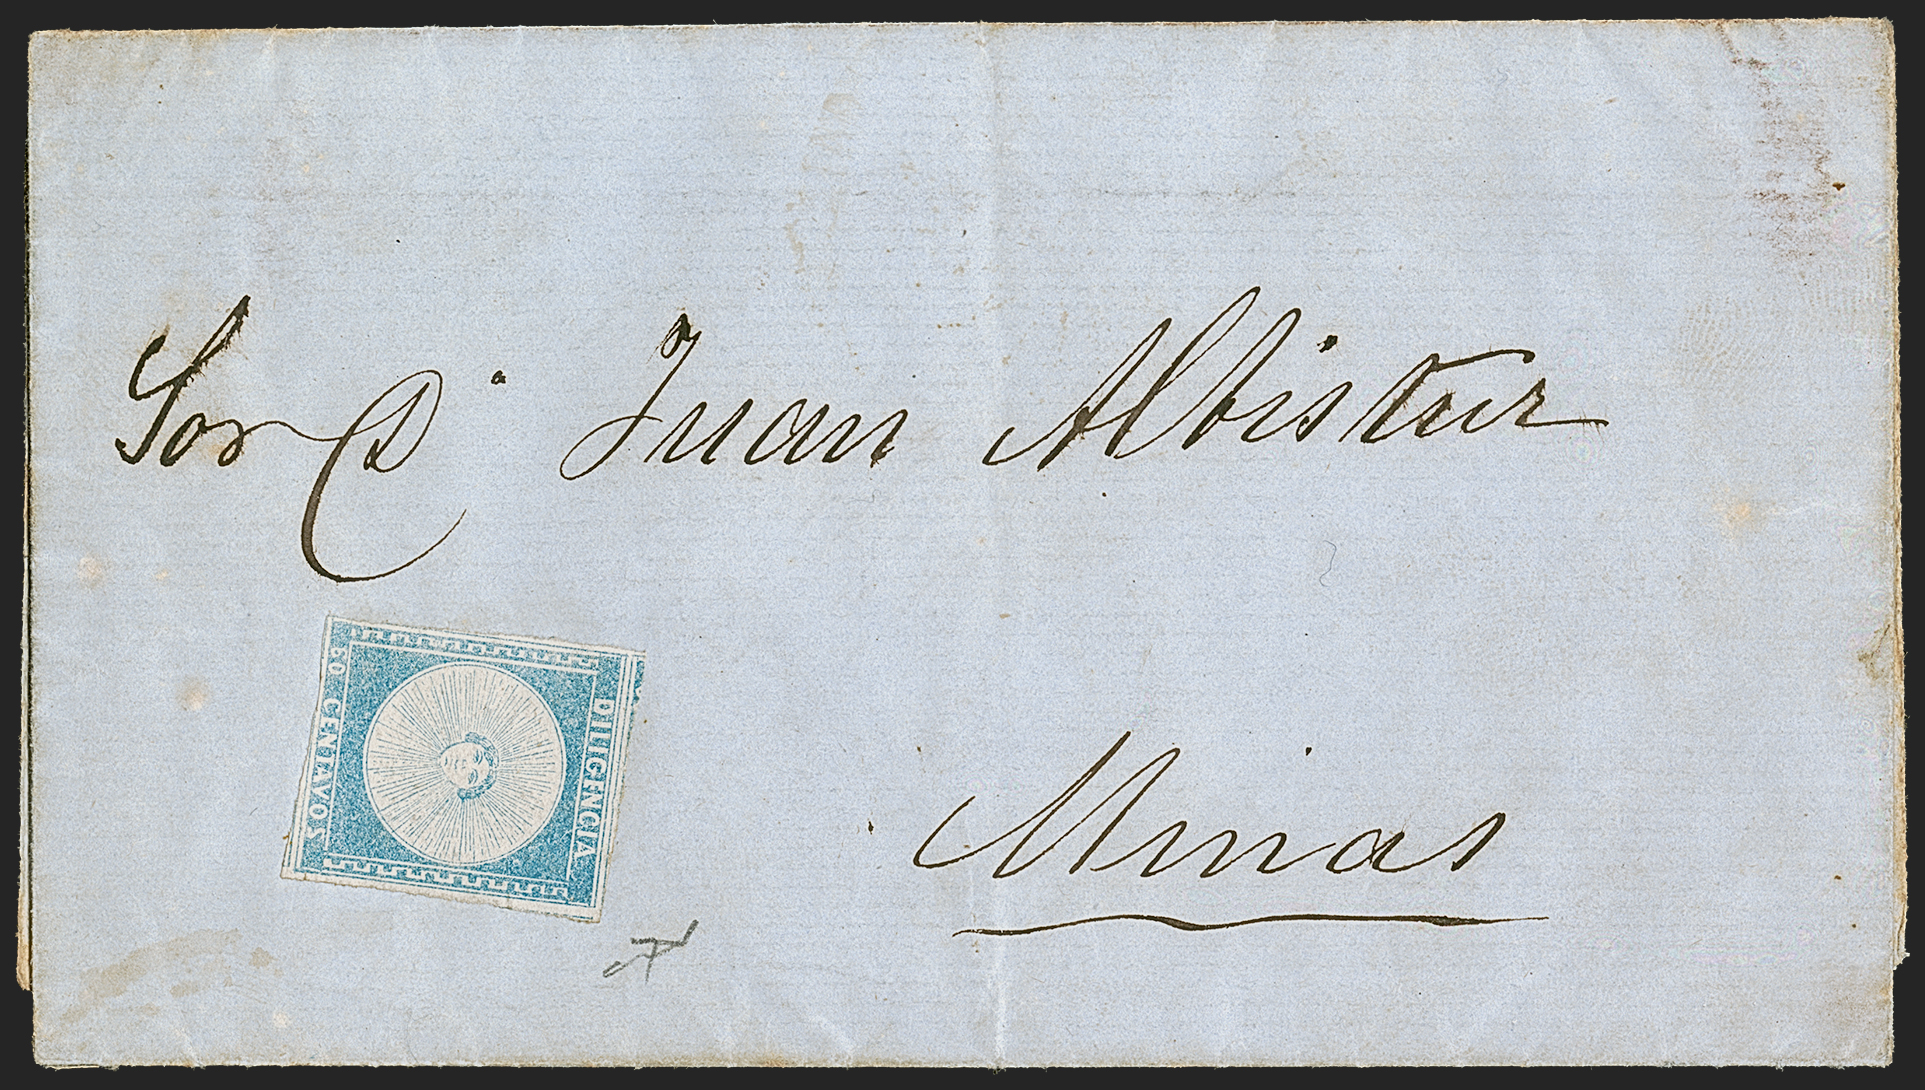 Sor D. Juan Albistur
DILIGENCIA
60 CENTAVOS
Minas